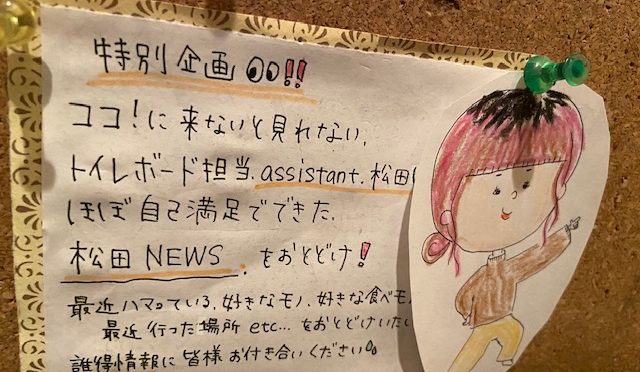 特別企画!!
ココ!に来ないと見れない、
トイレボード担当.assistant.松田
ほぼ自己満足でできた、
松田 NEWS.をおとどけ!
最近ハマっている、好きなモノ、好きな食べモ
最近行った場所 etc... をおとどけいた
誰得情報に皆様お付き合いください